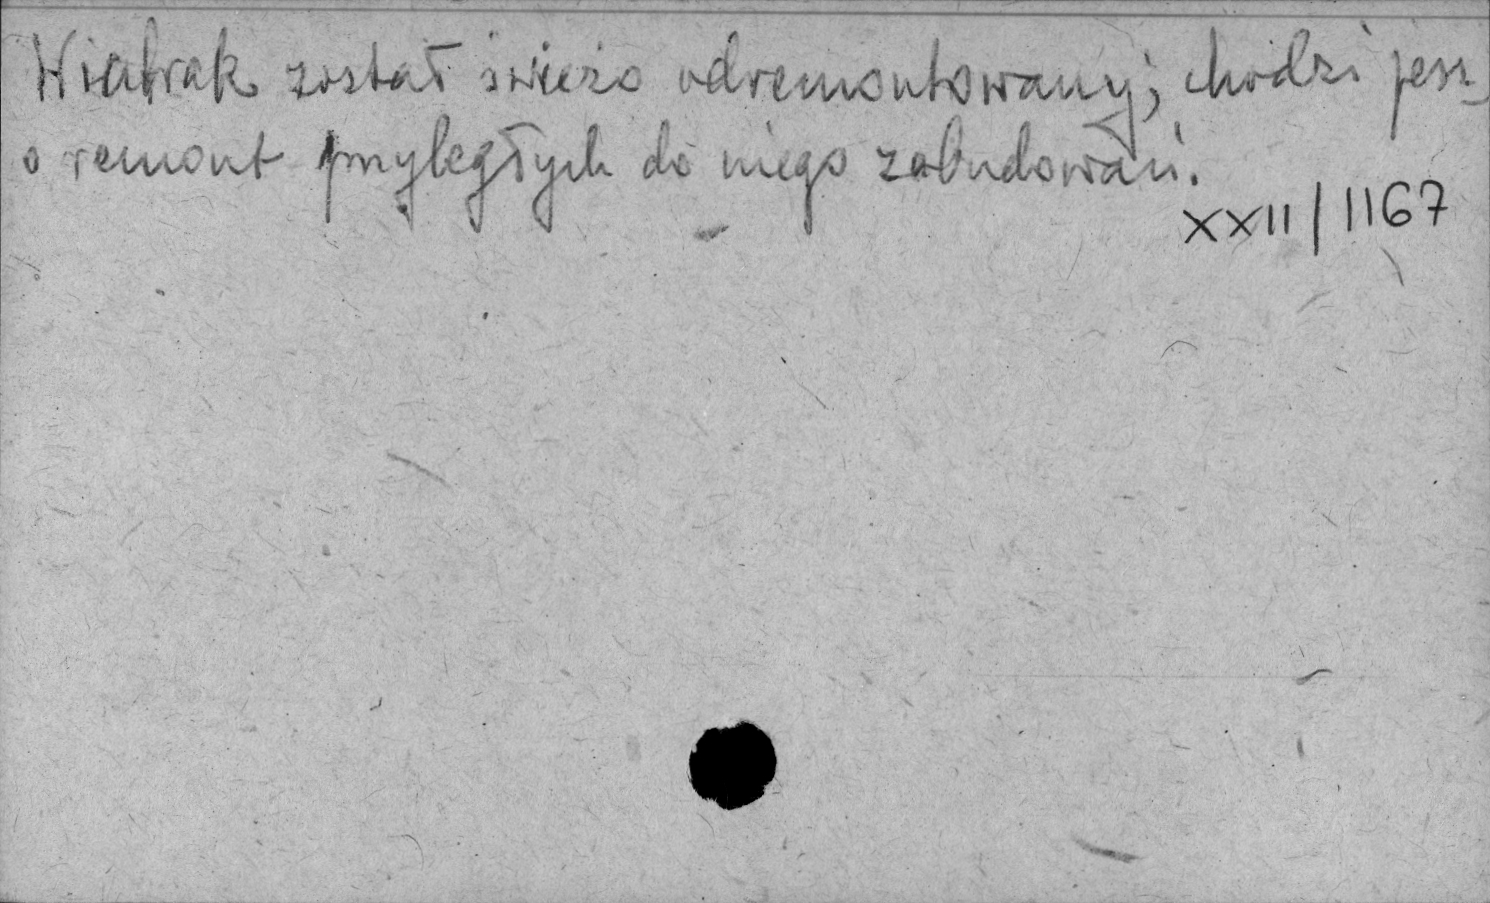 Wiatrak został świeżo odremontowany; chodzi jesz
o remont przyległych do niego zabudowań.
XXII/1167